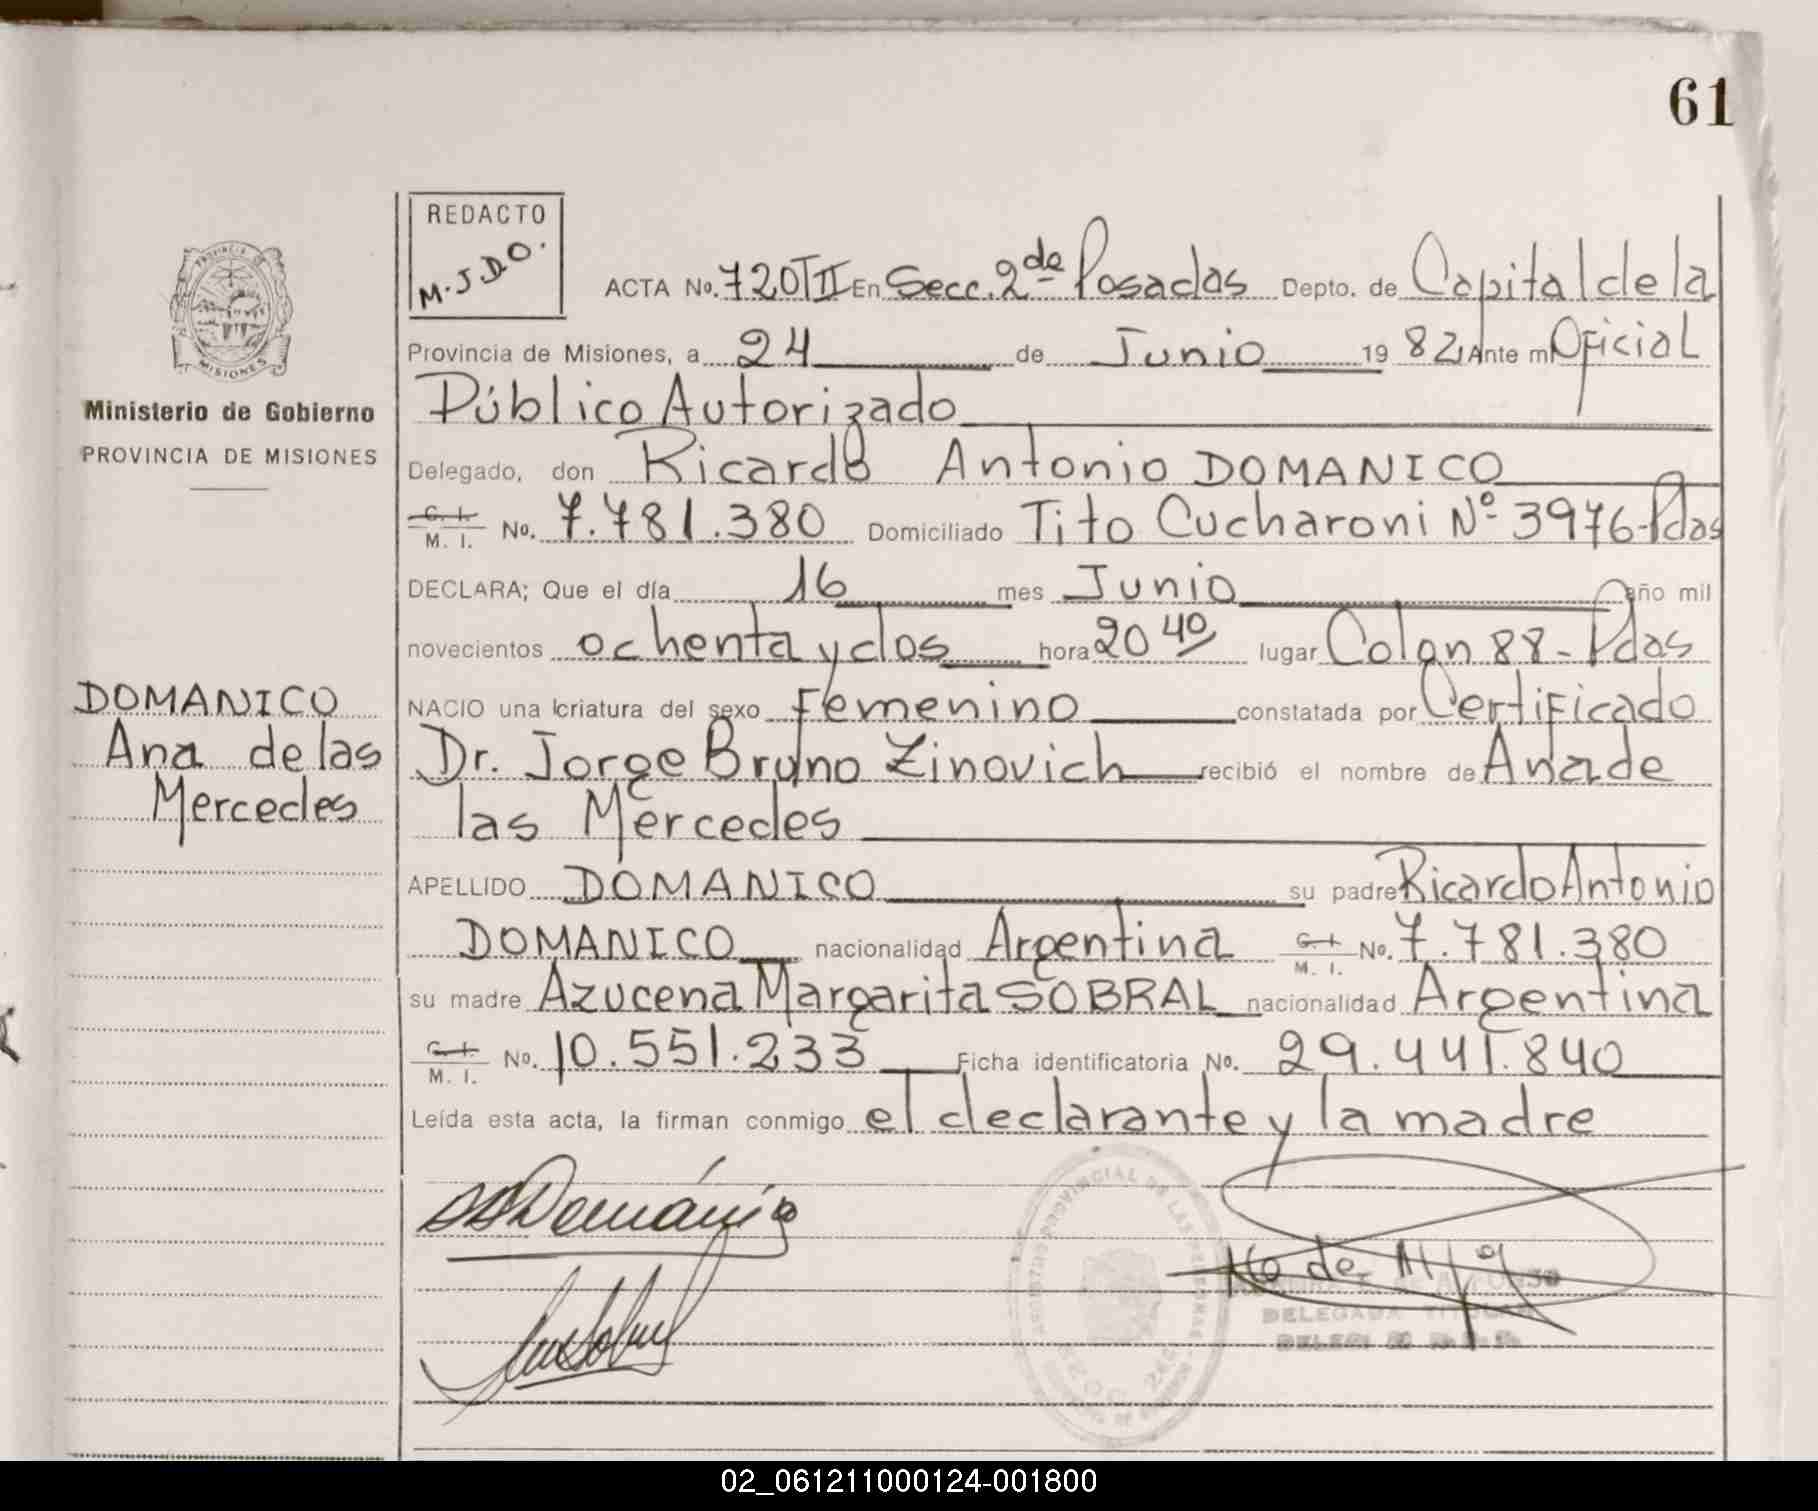 61
REDACTO
M.J.D.O.
ACTA No. 720TII En Secc. 2da Posadas Depto. de Capital de la
Provincia de Misiones, a 24 de Junio 19 82, Ante mi Oficial
Público Autorizado
Delegado, don Ricardo Antonio DOMANICO
C. I. M. I. No. 7.781.380 Domiciliado Tito Cucharoni Nº 3976-Pdas
DECLARA; Que el día 16 mes Junio año mil
novecientos ochenta y dos hora 20 40 lugar Colon 88-Pdas
NACIO una criatura del sexo Femenino constatada por Certificado
Dr. Jorge Bruno Zinovich recibió el nombre de Ana de
las Mercedes
APELLIDO DOMANICO su padre Ricardo Antonio
DOMANICO nacionalidad Argentina C. I. M. I. No. 7.781.380
su madre Azucena Margarita SOBRAL nacionalidad Argentina
C. I. M. I. No. 10.551.233 Ficha identificatoria No. 29.441.840
Leída esta acta, la firman conmigo el declarante y la madre
Dománico
DELEGADA TITULAR
PROVINCIA DE MISIONES
Ministerio de Gobierno
PROVINCIA DE MISIONES
DOMANICO
Ana de las
Mercedes
02_061211000124-001800